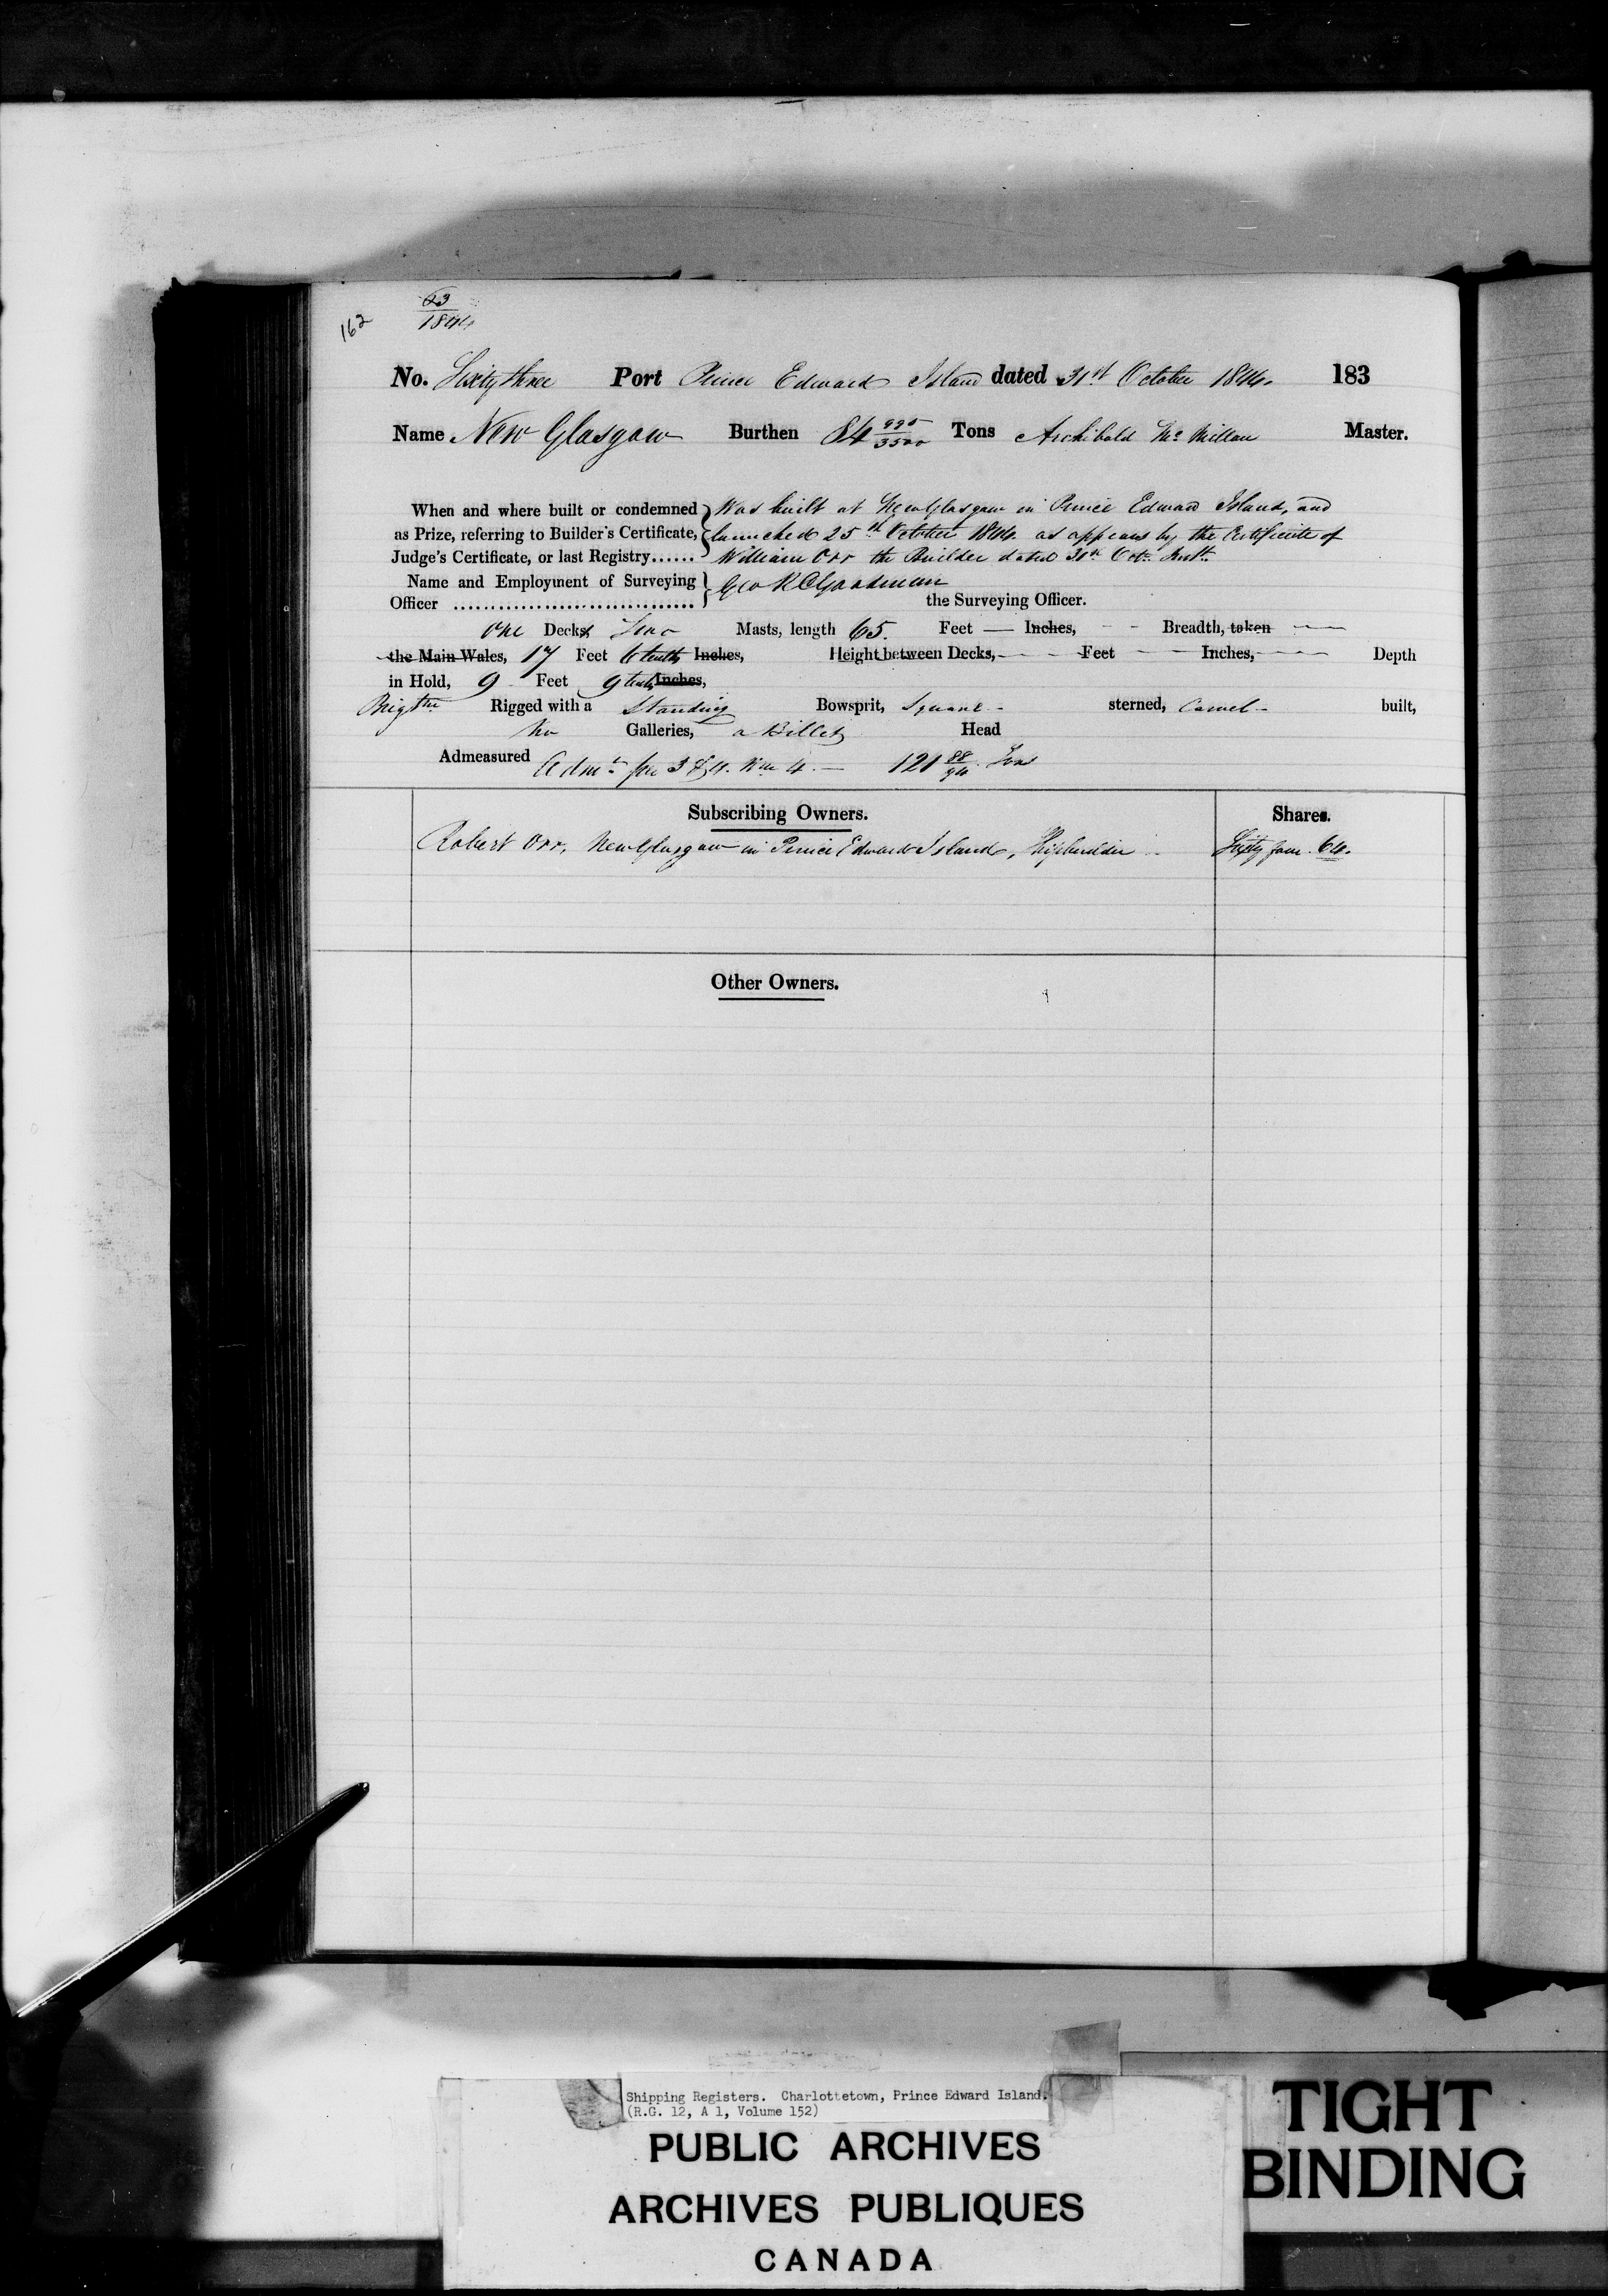 162
63
1844
No. Sixty three Port Prince Edward Island dated 31st October 1844. 183
Name New Glasgow Burthen 84 995/3500 Tons Archibald Mc Millan Master.
When and where built or condemned Was built at New Glasgow in Prince Edward Island, and
as Prize, referring to Builder's Certificate, launched 25th October 1844 as appears by the Certificate of
Judge's Certificate, or last Registry...... William Orr the Builder dated 31st Octr Inst.
Name and Employment of Surveying Geo R Goodman
Officer ................................ the Surveying Officer.
One Decks Two Masts, length 65. Feet — Inches, - - Breadth, taken
the Main Wales, 17 Feet 6 tenths Inches, Height between Decks, Feet Inches, Depth
in Hold, 9 Feet 9 tenths Inches,
Brigtne Rigged with a Standing Bowsprit, Square sterned, Carvel built,
No Galleries, a Billet Head
Admeasured Admt per 3 & 4. Wm 4. — 121 88/94 Tons
Subscribing Owners. Shares.
Robert Orr, New Glasgow in Prince Edward Island, Shipbuilder Sixty four 64.
Other Owners.
Shipping Registers. Charlottetown, Prince Edward Island.
(R.G. 12, A 1, Volume 152)
PUBLIC ARCHIVES
ARCHIVES PUBLIQUES
CANADA
TIGHT
BINDING